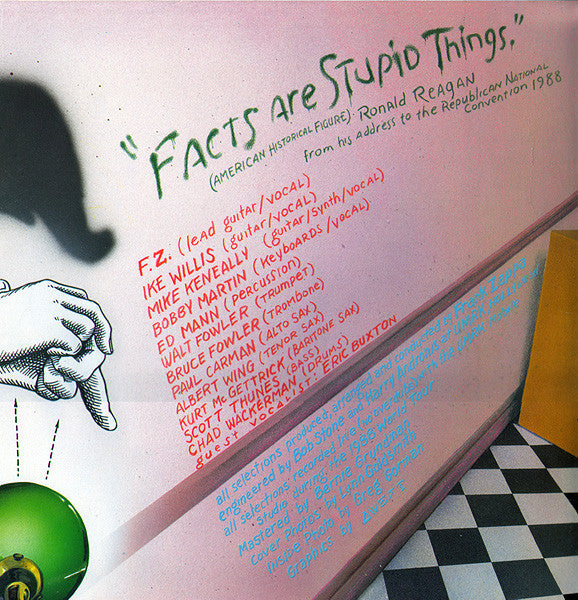 "FACTS are STUPID Things."
(AMERICAN HISTORICAL FIGURE) · RONALD REAGAN
from his address to the REPUBLICAN NATIONAL
CONVENTION 1988
F.Z. (lead guitar/VOCAL)
IKE WILLIS (guitar/VOCAL)
MIKE KENEALLY (guitar/synth/VOCAL)
BOBBY MARTIN (Keyboards/VOCAL)
ED MANN (percussion)
WALT FOWLER (Trumpet)
BRUCE FOWLER (Trombone)
PAUL CARMAN (ALTO SAX)
ALBERT WING (TENOR SAX)
KURT McGETTRICK (BARITONE SAX)
SCOTT THUNES (BASS)
CHAD WACKERMAN (DRUMS)
guest vocalist: ERIC BUXTON
all selections produced, arranged and conducted by Frank Zappa
engineered by Bob Stone and Harry Andronis at UMRK
all selections recorded live (no overdubs) by the UMRK mobile
studio during the 1988 World Tour
Mastered by Bernie Grundman
Cover Photos by Lynn Goldsmith
Inside Photo by Greg Gorman
Graphics by